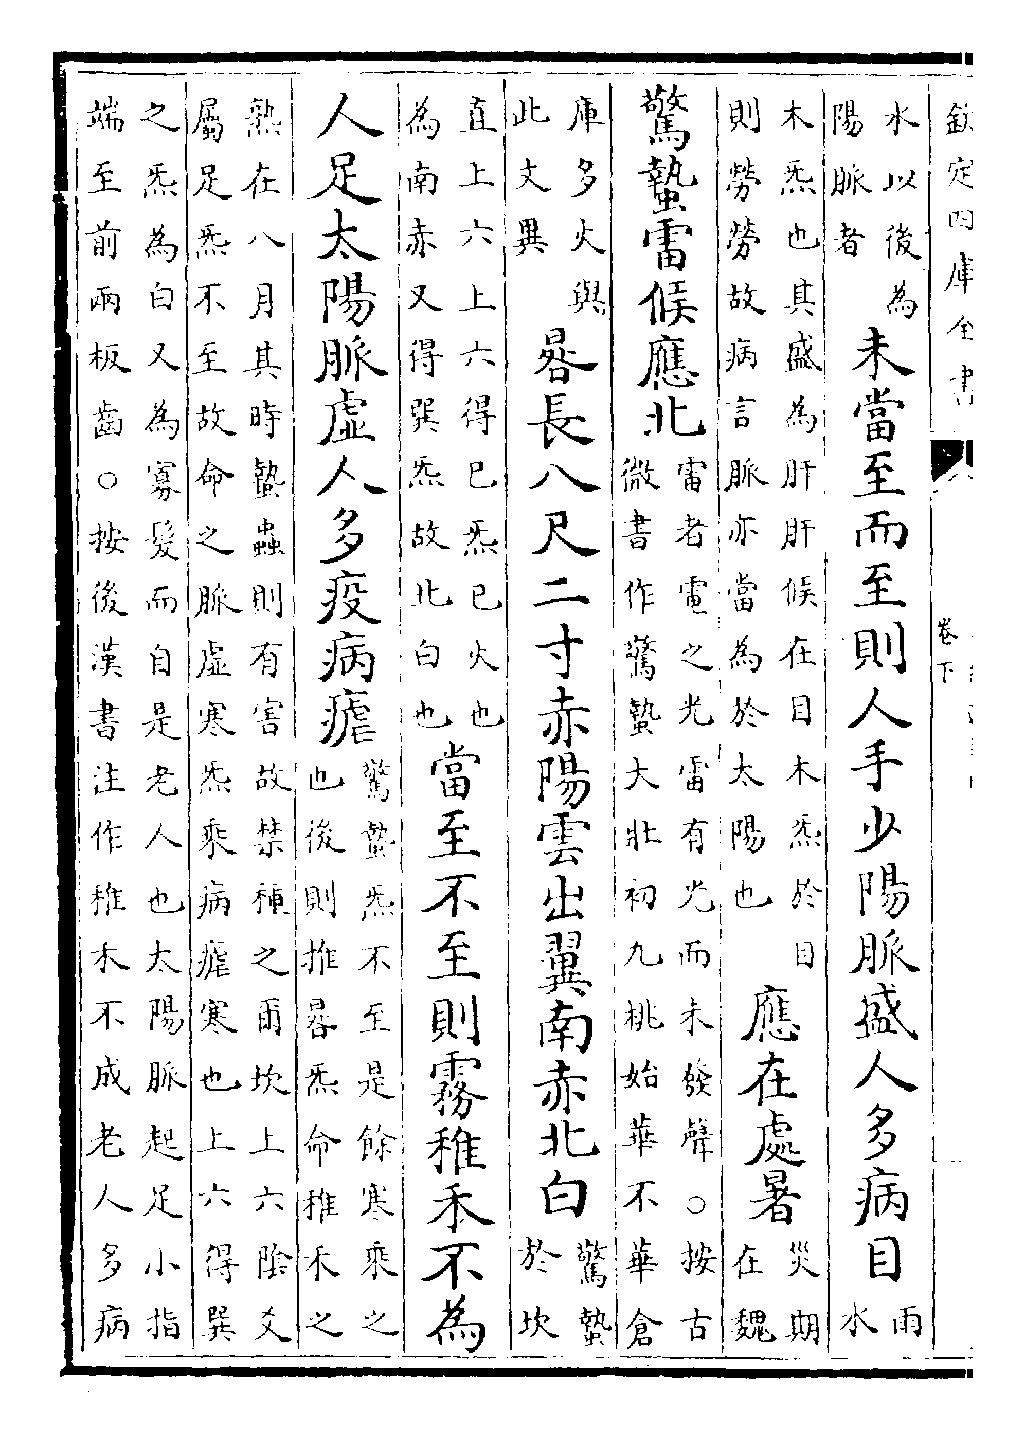 欽定四庫全書
卷下
水以後為
陽脈者
未當至而至則人手少陽脈盛人多病目
雨
水
木炁也其盛為肝肝候在目木炁於目
則勞勞故病言脈亦當為於太陽也
應在處暑
災期
在魏
驚蟄雷候應北
雷者電之光雷有光而未發聲○按古
微書作驚蟄大壯初九桃始華不華倉
庫多火與
此文異
晷長八尺二寸赤陽雲出翼南赤北白
驚蟄
於坎
直上六上六得巳炁巳火也
為南赤又得巽炁故北白也
當至不至則霧稚禾不為
人足太陽脈虛人多疫病瘧
驚蟄炁不至是餘寒乘之
也後則推晷炁命推禾之
熟在八月其時蟄蟲則有害故禁種之爾坎上六陰爻
屬足炁不至故命之脈虛寒炁乘病瘧寒也上六得巽
之炁為白又為寡髮而自是老人也太陽脈起足小指
端至前兩板齒○按後漢書注作稚木不成老人多病